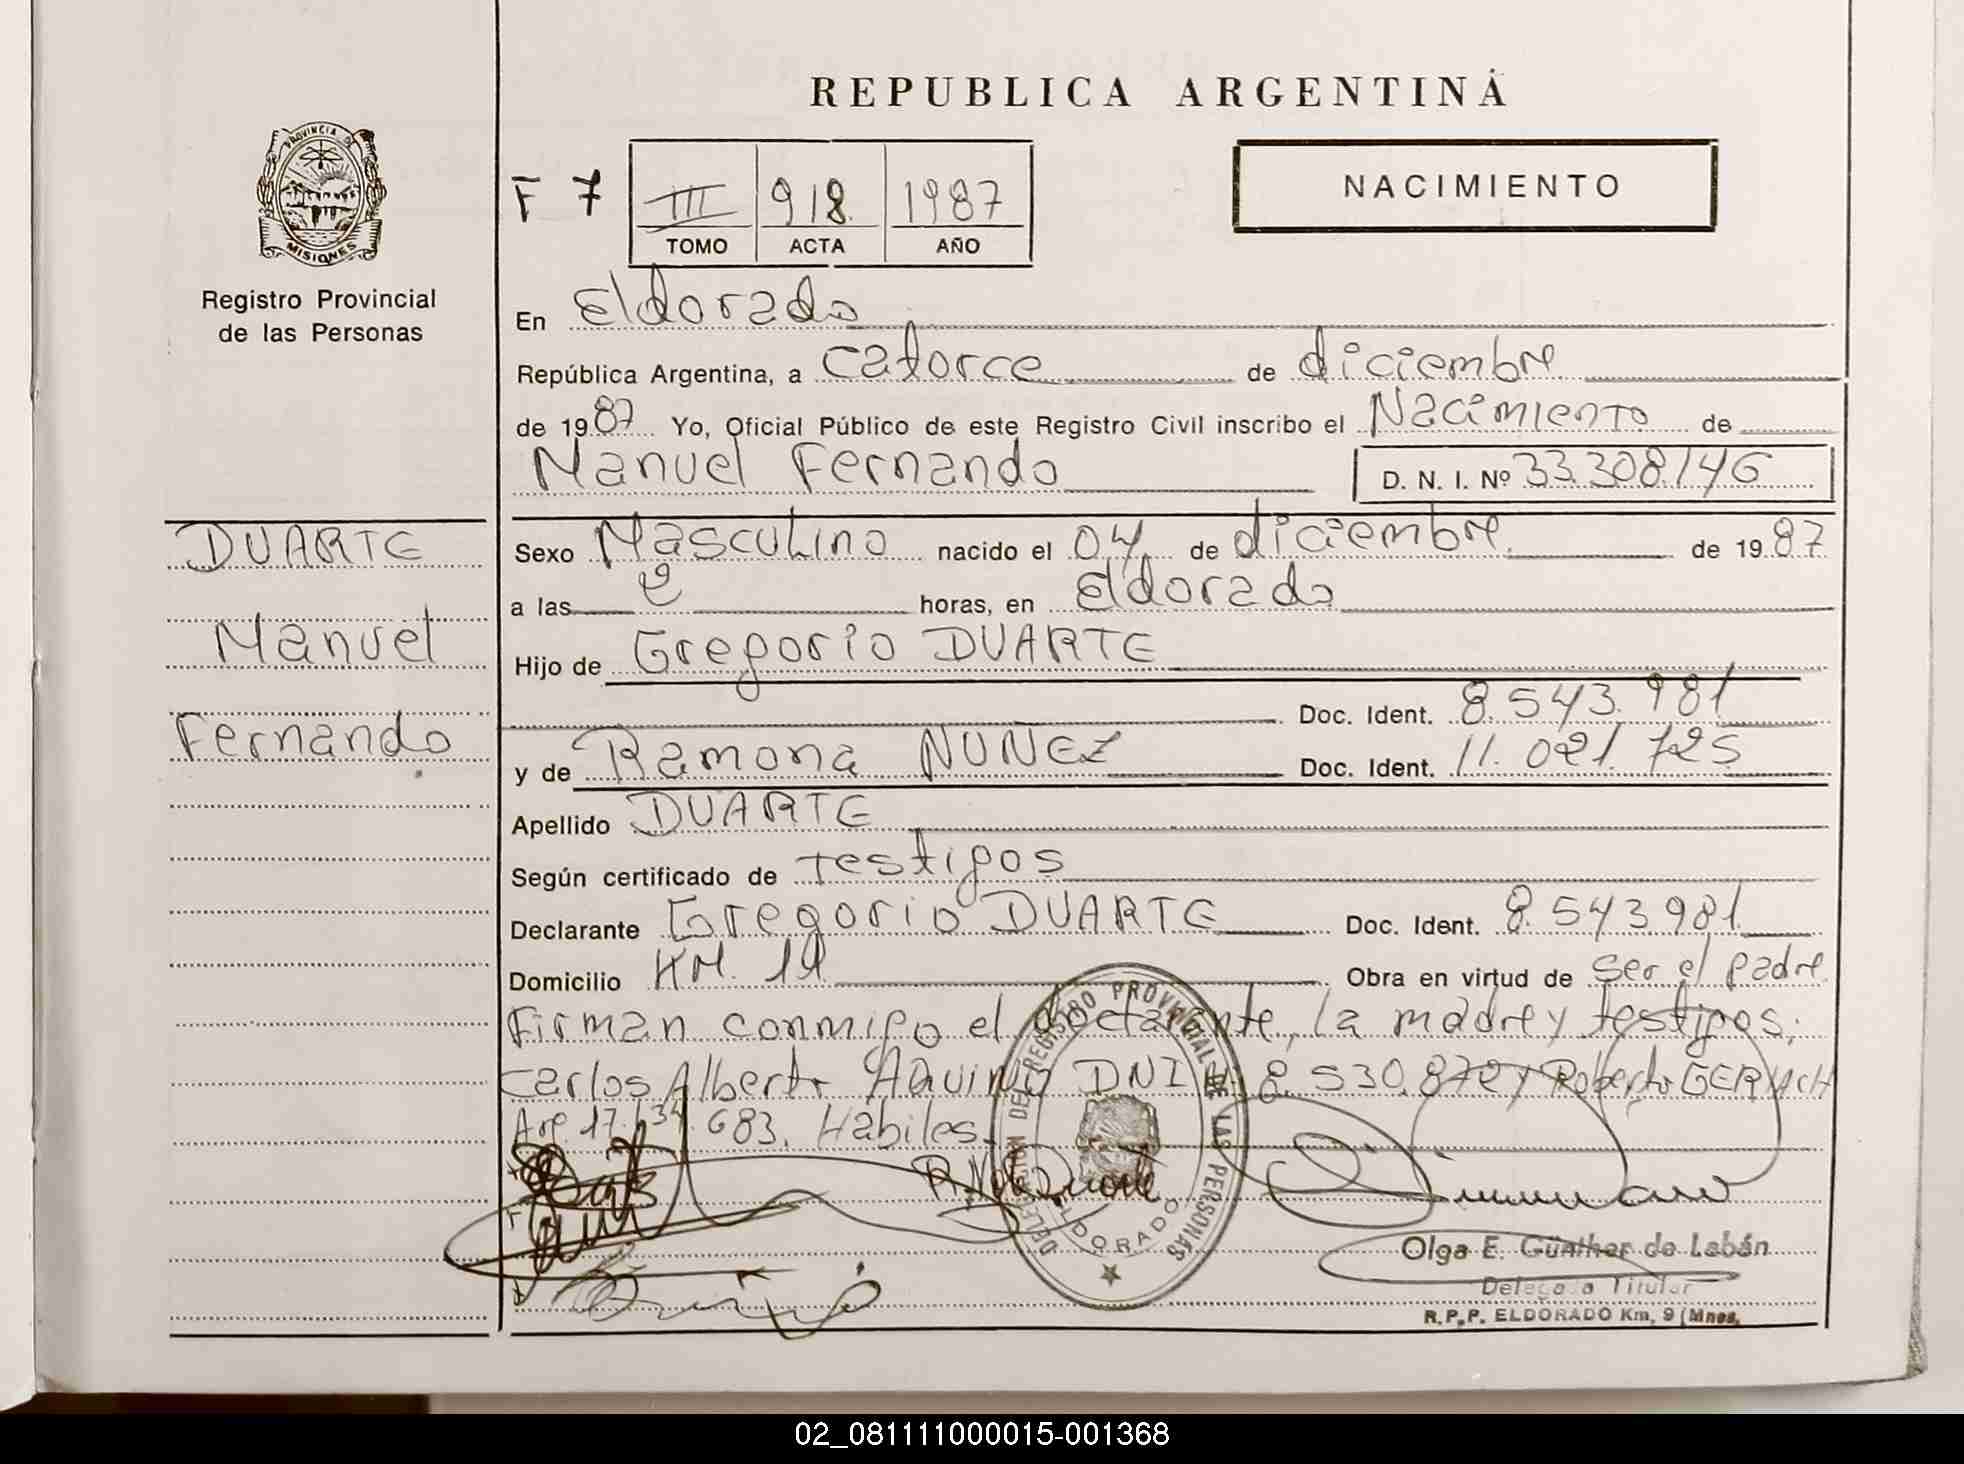 REPUBLICA ARGENTINA
PROVINCIA DE
MISIONES
Registro Provincial
de las Personas
F 7
III 918 1987
TOMO ACTA AÑO
NACIMIENTO
En Eldorado
República Argentina, a catorce de diciembre
de 1987 Yo, Oficial Público de este Registro Civil inscribo el Nacimiento de
Manuel Fernando D. N. I. Nº 33.308.146
DUARTE
Manuel
Fernando
Sexo Masculino nacido el 04 de diciembre de 1987
a las horas, en Eldorado
Hijo de Gregorio DUARTE
Doc. Ident. 8.543.981
y de Ramona NUNEZ Doc. Ident. 11.021.725
Apellido DUARTE
Según certificado de testigos
Declarante Gregorio DUARTE Doc. Ident. 8.543.981
Domicilio KM. 11 Obra en virtud de ser el padre
Firman conmigo el declarante, la madre y testigos;
Carlos Alberto Aquino DNI 8.530.872 y Roberto GERLACH
Arg. 17.134.683. Habiles.
DELEGACION DEL REGISTRO PROVINCIAL DE LAS PERSONAS
ELDORADO
Olga E. Günther de Labán
Delegada Titular
R.P.P. ELDORADO Km. 9 (Mnes.
02_081111000015-001368